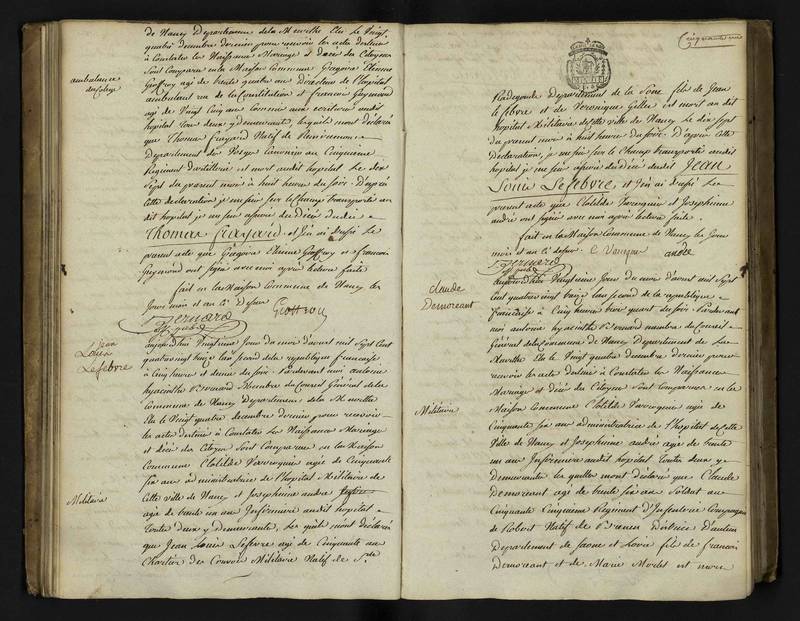 de Nancy Département de la Meurthe Elu le Vingt
quatre decembre dernier pour recevoir les actes destinés
à Constater les Naissance Mariage & décès des Citoyens
Sont Comparu en la Maison Commune Gregoire Etienne
ambulance
du College
Geoffroy agé de trente quatre ans Directeur de l'hopital
ambulant rue de la Constitution et francois
agé de Vingt Cinq ans Commis aux ecritures audit
hopital tous deux y demeurants, lesquels m'ont déclaré
que Thomas Frayard Natif de
Departement des Vosges Canonier au Cinquieme
Regiment d'artillerie est mort audit hopital le dix
Sept du present mois à huit heure du soir. D'après
Cette declaration je me suis sur le Champ transporté au
dit hopital je me suis assuré du Décès dudit
Thomas Frayard et j'en ai dressé Le
present acte que Gregoire Etienne Geoffroy et francois
ont signé avec moi après lecture faite
fait en la Maison Commune de Nancy les
Jours mois et an ci dessus Geoffroy
Bernard
off. public
Jean
Louis
Lefebvre
aujourd'hui Vingtieme Jour du mois d'avril mil Sept Cent
quatre vingt treize l'an Second de la republique francaise
à Cinq heure et demie du soir. Pardevant moi antoine
hyacinthe Bernard Membre du Conseil General de la
Commune de Nancy Departement de la Meurthe
Elu le Vingt quatre decembre dernier pour recevoir
les actes destiné à Constater les Naissance Mariage
et décès des Citoyens Sont Comparu en la Maison
Commune Clotilde Varocquier agée de Cinquante
six ans administratrice de l'hopital Militaire de
Militaire
Cette ville de Nancy et Josephine andré
agée de trente un ans Infirmiere audit hopital
toutes deux y Demeurante, Lesquels mont declaré
que Jean Louis Lefebvre agé de Cinquante ans
Chartier des Convois Militaire Natif de Ste

Cinquante un
Radegonde Departement de la Somme fils de Jean
le febvre et de Veronique Gelle est mort audit
hopital Militaire de cette ville de Nancy le dix sept
du present mois à huit heure du soir. D'après Cette
Declaration, je me suis sur le Champ transporté audit
hopital je me suis assuré du Décès dudit Jean
Louis Lefebvre, et j'en ai dressé Le
present acte que Clotilde Varocquier et Josephinne
andré ont signé avec moi après lecture faite.
fait en la Maison Commune de Nancy les Jours
mois et an ci dessus. andré
Bernard
off. public
claude
Demoreant
aujourd'hui Vingtieme Jour du mois d'avril mil Sept
Cent quatre vingt treize l'an Second de la republique
francaise à Cinq heure trois quart du soir. Pardevant
moi antoine hyacinthe Bernard membre du Conseil
Général de la Commune de Nancy Departement de La
Meurthe Elu le Vingt quatre decembre dernier pour
recevoir les actes destiné à Constater les Naissance
Mariage et décès des Citoyens Sont Comparu en la
Militaire
Maison Commune Clotilde Varocquier agée de
Cinquante six ans administratrice de l'hopital de Cette
Ville de Nancy et Josephinne andré agée de trente
un ans Infirmiere audit hopital toutes deux y
Demeurante lesquelles mont déclaré que Claude
Demoreant agé de trente six ans Soldat au
Cinquante Cinquieme Regiment d'Infanterie Compagnie
de Robert Natif de District D'autun
Departement de Saone et Loire fils de francois
Demoreant et de Marie Morlet est mort